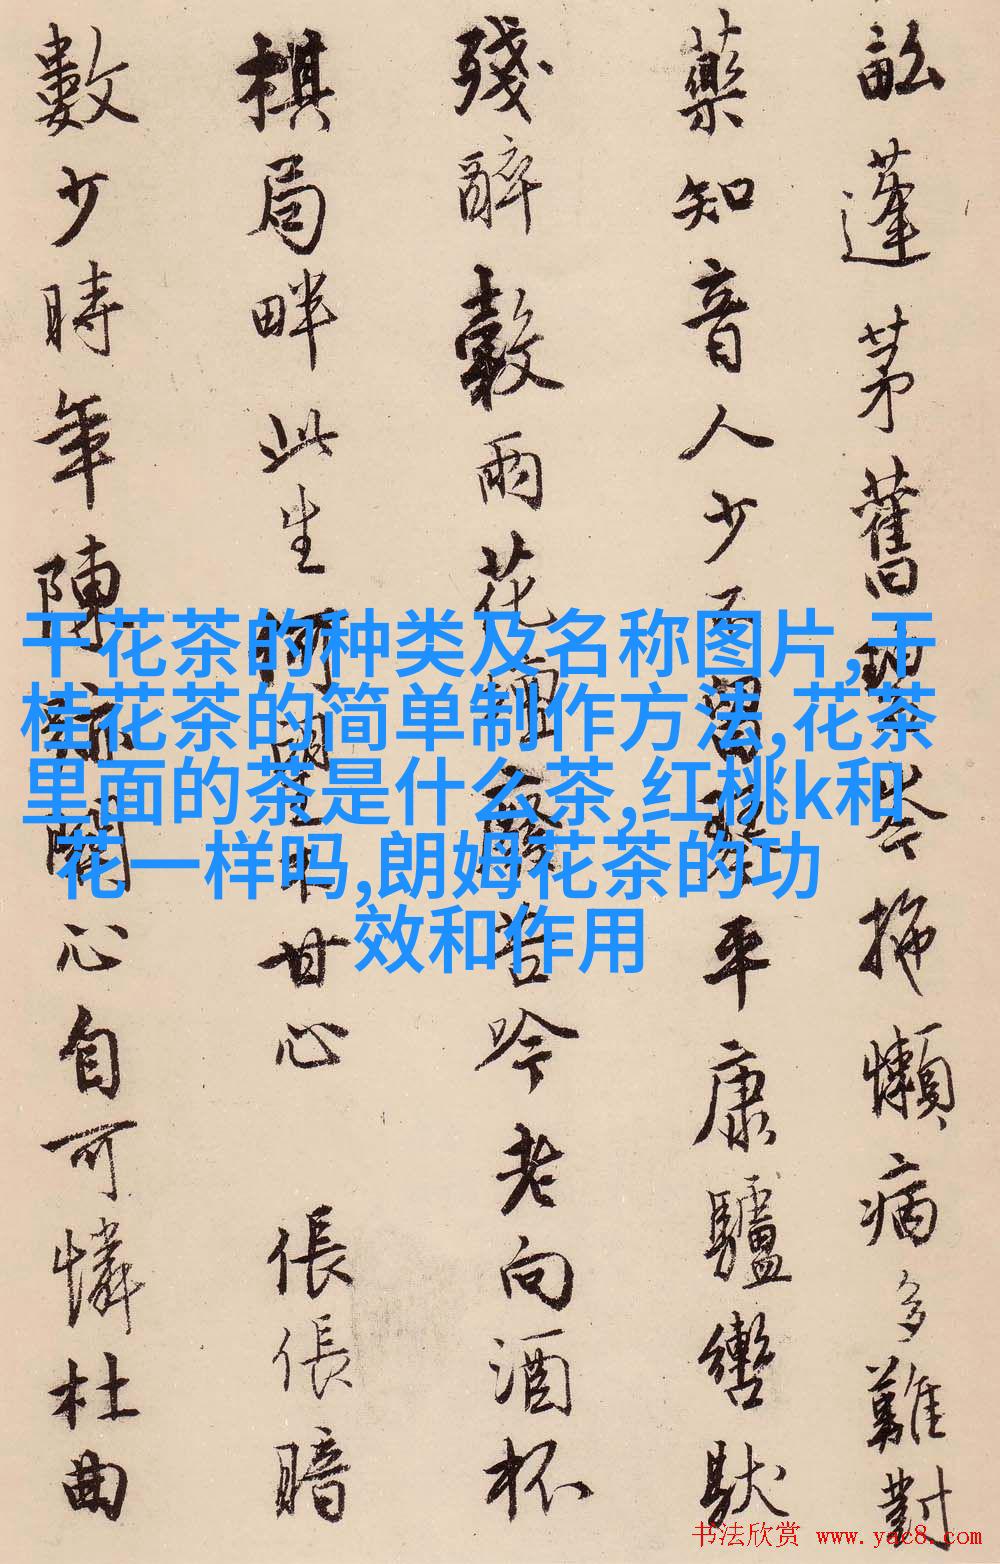 畝蓬茅舊琴書拋懶病多難對
藥知音人少不留琴平康驢轡馱
殘醉轂雨花壇廢苦吟老向酒杯
棋局畔此生何關 甘心 倀倀暗
數少時年陳跡關心自可憐杜曲
干花茶的种类及名称图片,干
桂花茶的简单制作方法,花茶
里面的茶是什么茶,红桃k和
花一样吗,朗姆花茶的功
效和作用
书法欣赏 www.yac8.com